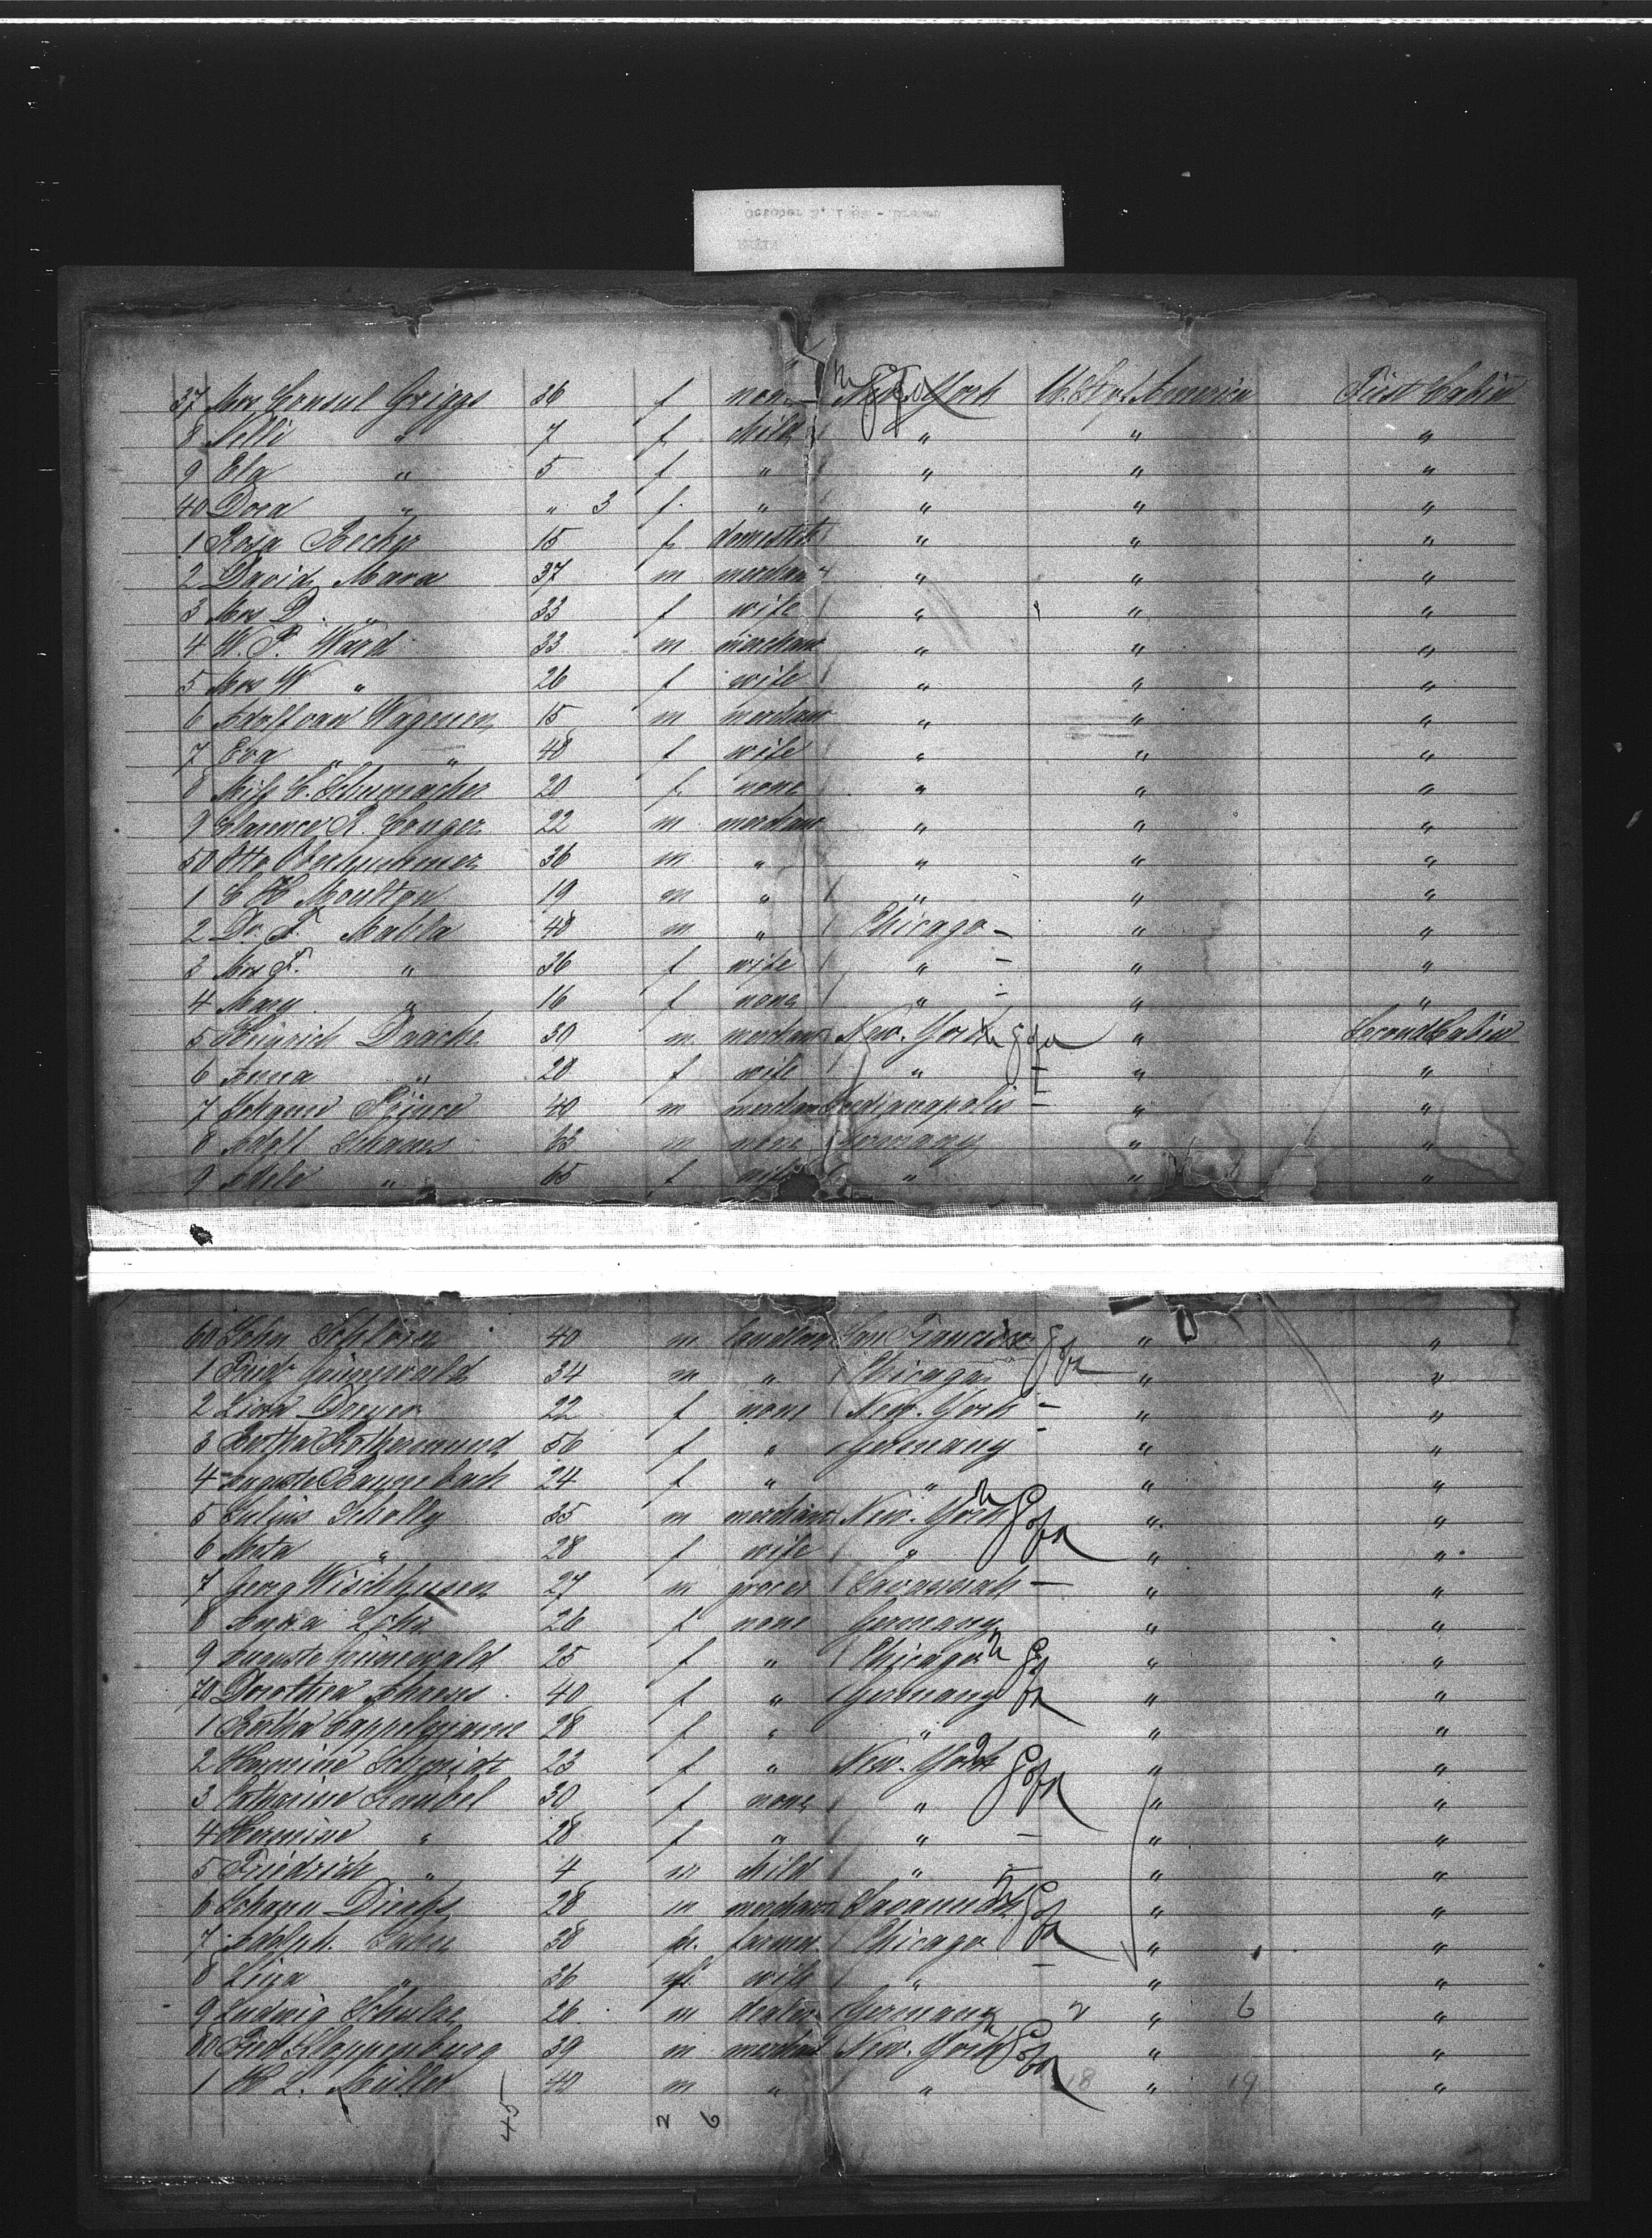 37 Mrs Consul Griggs 36 f none New York U. St. of America First Cabin
8 Nelli " 7 f child " " "
9 Ela " 5 f " " " "
40 Dora " " 3 f. " " " "
1 Rosa Becker 15 f domestic " " "
2 David Marx 37 m merchant " " "
3 Mrs D. " 33 f wife " " "
4 W. P. Ward 33 m merchant " " "
5 Mrs W " 26 f wife " " "
6 Adolf van Wagenen 15 m merchant " " "
7 Eva " " 48 f wife " " "
8 Miss C. Schumacher 20 f. none " " "
9 Clarence R. Conger 22 m merchant " " "
50 Otto 36 m " " " "
1 C H Moulton 19 m " " " "
2 Dr. F. Mahla 48 m " Chicago " "
3 Mrs F. " 36 f wife " " "
4 Mary " 16 f none " " "
5 Heinrich Daacke 30 m merchant New-York " Second Cabin
6 Anna " 20 f wife " " "
7 Johann Prince 40 m merchant Indianapolis " "
8 Adolf Ahrens 63 m none Germany " "
9 Adele " 65 f wife " " "
60 John 40 m San Francisco " "
1 Fritz Grünewald 34 m " Chicago " "
2 Lina Dreyer 22 f none New-York " "
3 Bertha Rothermund 56 f " Germany " "
4 Auguste Baumbach 24 f " " " "
5 Julius Scholly 35 m merchant New-York " "
6 Meta " 28 f wife " " "
7 Georg Wischhusen 27 m grocer Savannah " "
8 Anna 26 f none Germany " "
9 Auguste Grünewald 25 f " Chicago " "
70 Dorothea Ahrens 40 f " Germany " "
1 Bertha Cappelmann 28 f " " " "
2 Hermine Schmidt 23 f " New-York " "
3 Catharine Knübel 30 f none " " "
4 Hermine " 28 f " " " "
5 Friedrich " 4 m child " " "
6 Johann Dierks 28 m merchant Savannah " "
7 Adolph. 38 m. farmer Chicago " "
8 Lina " 36 f. wife " " "
9 Ludwig Schulze 26 m dealer Germany 2 " 6 "
80 Fred Kloppenburg 39 m merchant New-York " "
1 H L. Müller 40 m " " 18 " 19 "
45 2 6